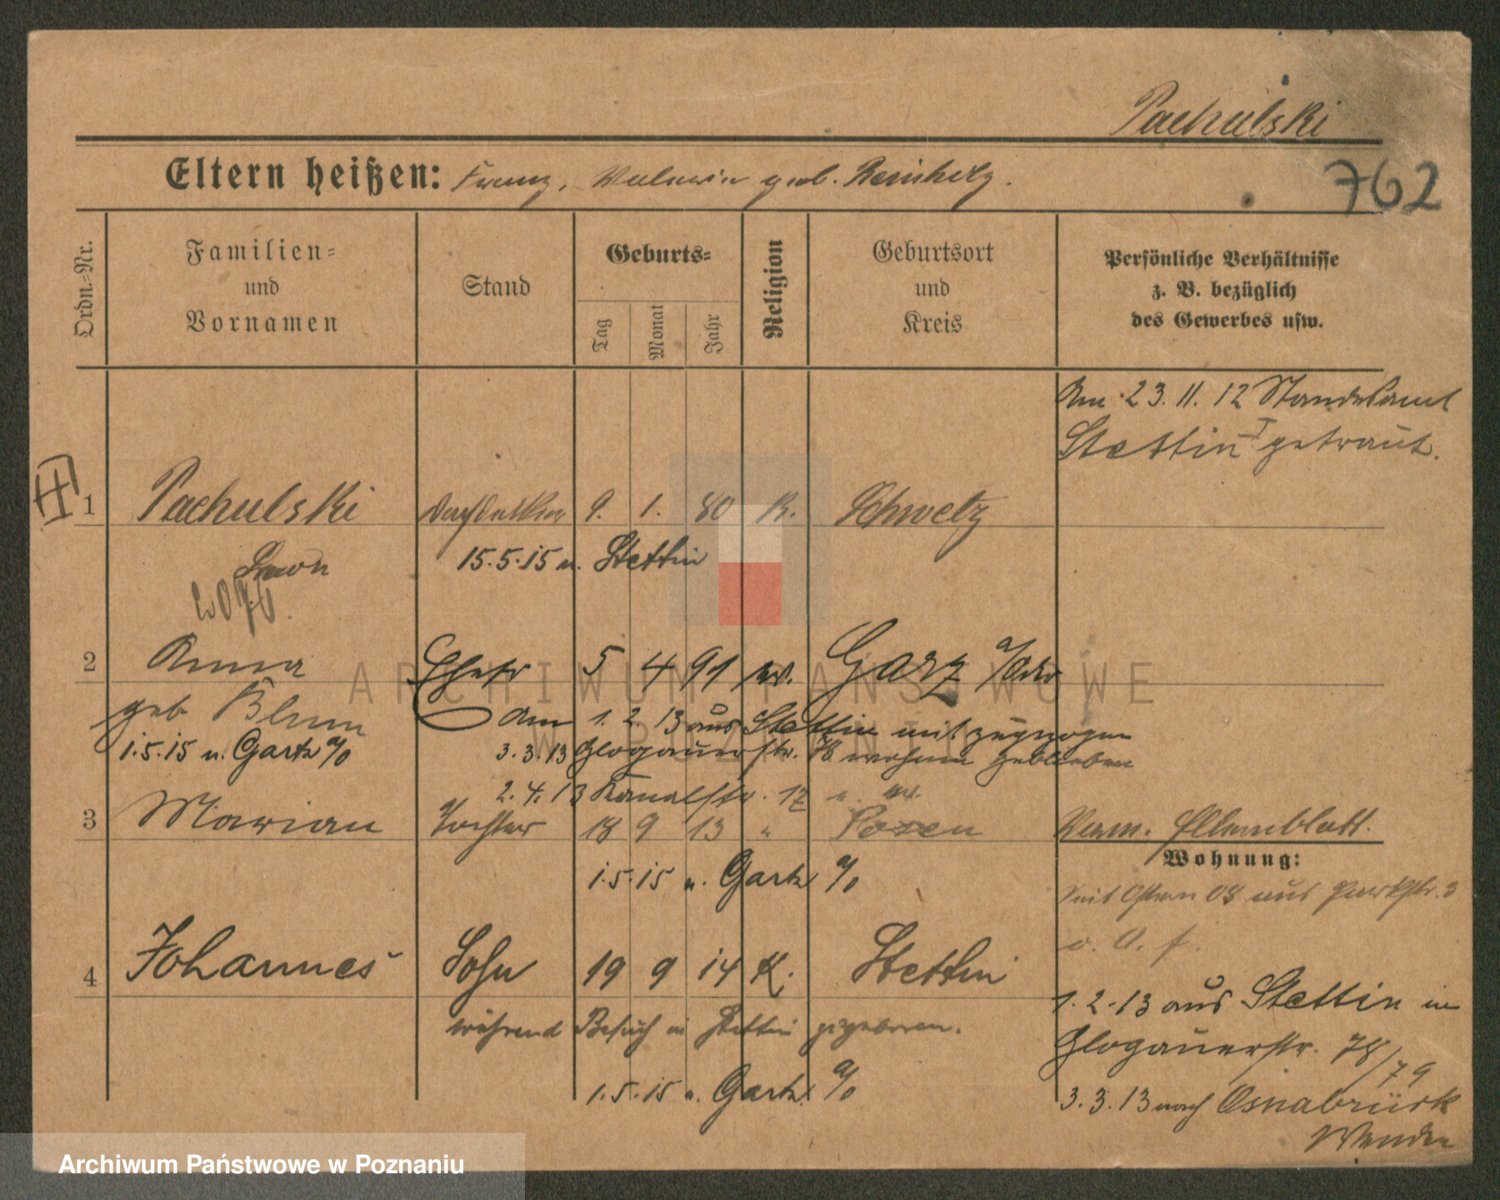 Pachulski
762
Eltern heißen: Franz, geb. Reinholz.
Ordn.-Nr.
Familien-
und
Vornamen
Stand
Geburts-
Tag
Monat
Jahr
Religion
Geburtsort
und
Kreis
Persönliche Verhältnisse
z. B. bezüglich
des Gewerbes usw.
Am 23.11.12 Standesamt
Stettin I getraut.
1 Pachulski Dachdecker 9. 1. 80 K. Schwetz
Leon 15.5.15 n. Stettin
2 Anna Ehefr 5 4 91 Garz a/Oder
geb Blum Am 1.2.13 aus Stettin mit zugezogen
1.5.15 n. Gartz a/O 3.3.13 Glogauerstr. 78 wohnen geblieben
2.4.13 Kanalstr. 17
3 Marian Tochter 18 9 13 " Posen Verm. Ellernblatt.
Wohnung:
1.5.15 n. Gartz a/O
Seit Ostern 08 aus Parkstr. 3
v. A. f.
4 Johannes Sohn 19 9 14 K. Stettin
1.2.13 aus Stettin in
während Besuch in Stettin geboren.
Glogauerstr. 78/79
1.5.15 n. Gartz a/O
3.3.13 nach Osnabrück
ARCHIWUM PAŃSTWOWE
W POZNANIU
Archiwum Państwowe w Poznaniu